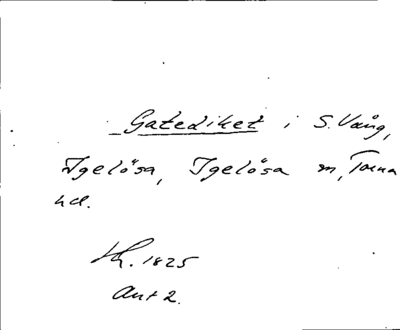 Gatediket i S. Vång,
Igelösa, Igelösa m, Torna
hd.
Kh. 1825
Ant 2.